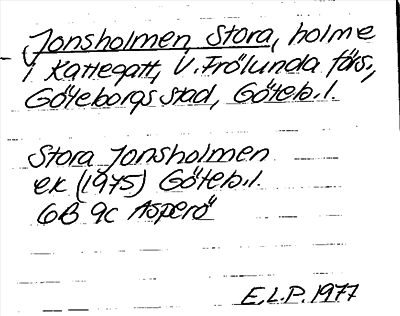 Jonsholmen, Stora, holme
i Kattegatt, V. Frölunda förs.,
Göteborgs stad, Göteb. l.
Stora Jonsholmen
ek (1975) Göteb. l.
6B 9c Asperö
E.L.P. 1977